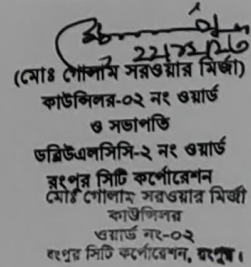 ২২/১১/২৩
(মোঃ গোলাম সরওয়ার মির্জা)
কাউন্সিলর-০২ নং ওয়ার্ড
ও সভাপতি
ডব্লিউএলসিসি-২ নং ওয়ার্ড
রংপুর সিটি কর্পোরেশন
মোঃ গোলাম সরওয়ার মির্জা
কাউন্সিলর
ওয়ার্ড নং-০২
রংপুর সিটি কর্পোরেশন, রংপুর।